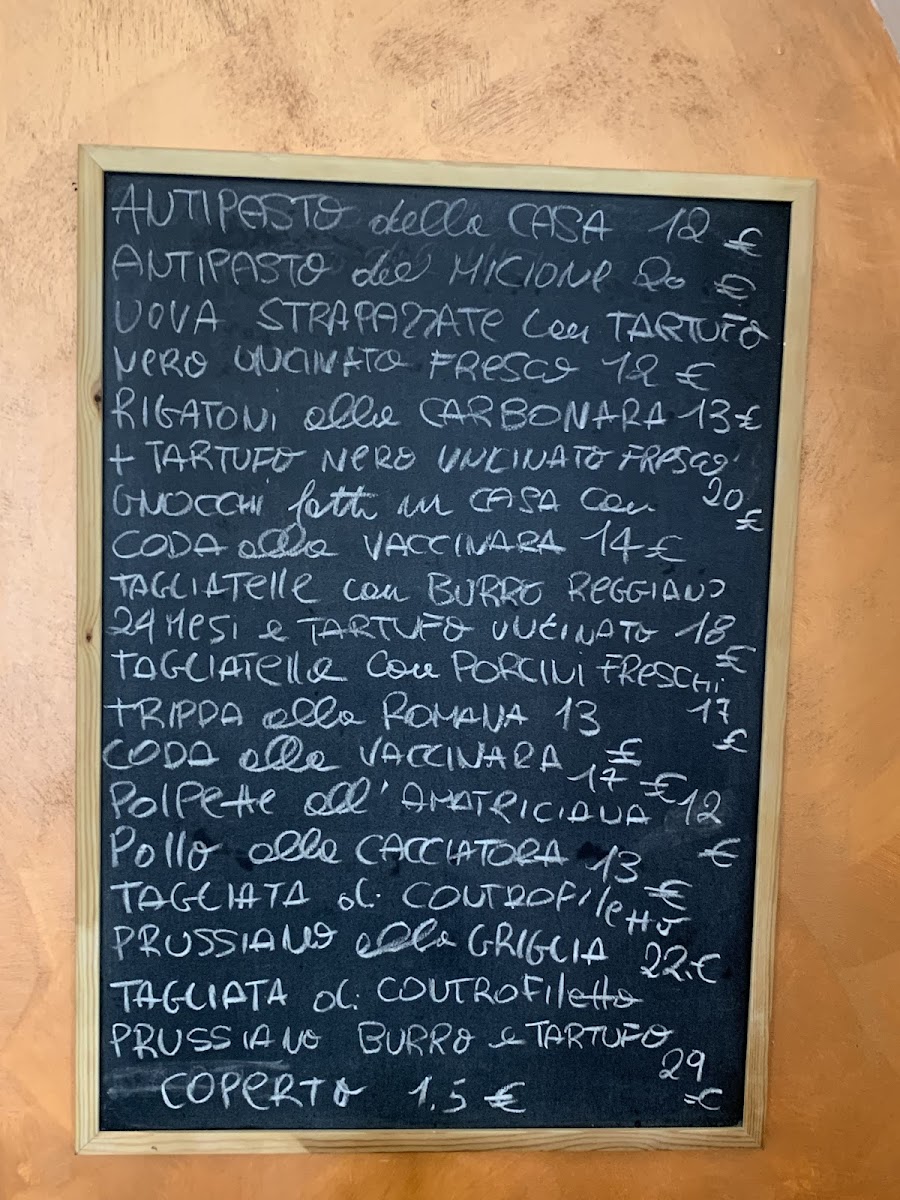 ANTIPASTO della CASA 12 €
ANTIPASTO del MICIONE 20 €
UOVA STRAPAZZATE con TARTUFO
NERO UNCINATO FRESCO 12 €
RIGATONI alla CARBONARA 13 €
+ TARTUFO NERO UNCINATO FRESCO
20 €
GNOCCHI fatti in CASA con
CODA alla VACCINARA 14 €
TAGLIATELLE con BURRO REGGIANO
24 MESI e TARTUFO UNCINATO 18 €
TAGLIATELLE con PORCINI FRESCHI
17 €
TRIPPA alla ROMANA 13 €
CODA alla VACCINARA 17 €
POLPETTE all'AMATRICIANA 12 €
POLLO alla CACCIATORA 13 €
TAGLIATA di CONTROFILETTO
PRUSSIANO alla GRIGLIA 22 €
TAGLIATA di CONTROFILETTO
PRUSSIANO BURRO e TARTUFO
29 €
COPERTO 1,5 €